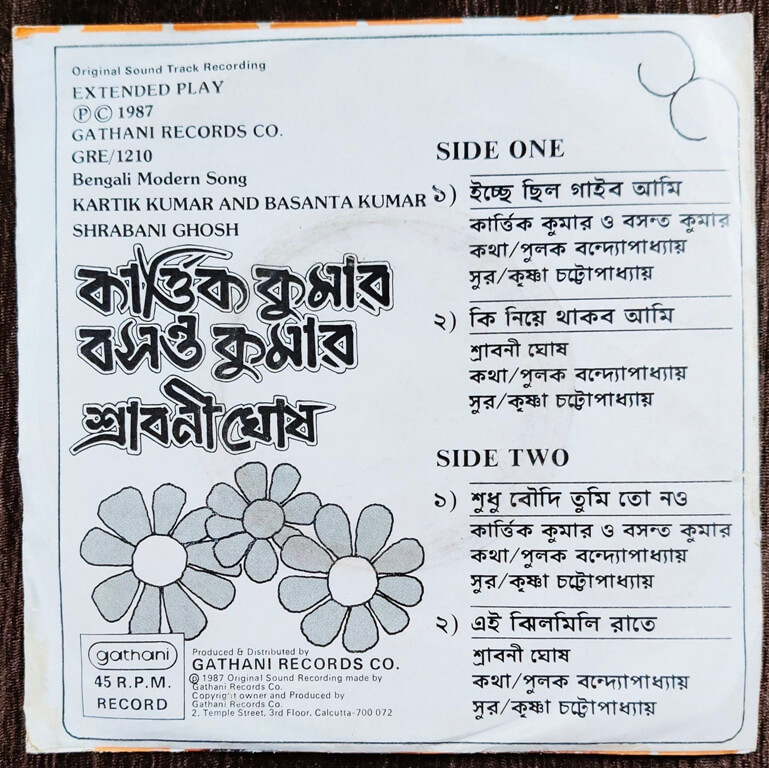 Original Sound Track Recording
EXTENDED PLAY
Ⓟ © 1987
GATHANI RECORDS CO.
GRE/1210
Bengali Modern Song
KARTIK KUMAR AND BASANTA KUMAR
SHRABANI GHOSH
কার্ত্তিক কুমার
বসন্ত কুমার
শ্রাবনী ঘোষ
SIDE ONE
১) ইচ্ছে ছিল গাইব আমি
কার্ত্তিক কুমার ও বসন্ত কুমার
কথা/পুলক বন্দ্যোপাধ্যায়
সুর/কৃষ্ণা চট্টোপাধ্যায়
২) কি নিয়ে থাকব আমি
শ্রাবনী ঘোষ
কথা/পুলক বন্দ্যোপাধ্যায়
সুর/কৃষ্ণা চট্টোপাধ্যায়
SIDE TWO
১) শুধু বৌদি তুমি তো নও
কার্ত্তিক কুমার ও বসন্ত কুমার
কথা/পুলক বন্দ্যোপাধ্যায়
সুর/কৃষ্ণা চট্টোপাধ্যায়
২) এই ঝিলমিলি রাতে
শ্রাবনী ঘোষ
কথা/পুলক বন্দ্যোপাধ্যায়
সুর/কৃষ্ণা চট্টোপাধ্যায়
gathani
45 R.P.M.
RECORD
Produced & Distributed by
GATHANI RECORDS CO.
Ⓟ 1987 Original Sound Recording made by
Gathani Records Co.
Copyright owner and Produced by
Gathani Records Co.
2, Temple Street, 3rd Floor, Calcutta-700 072